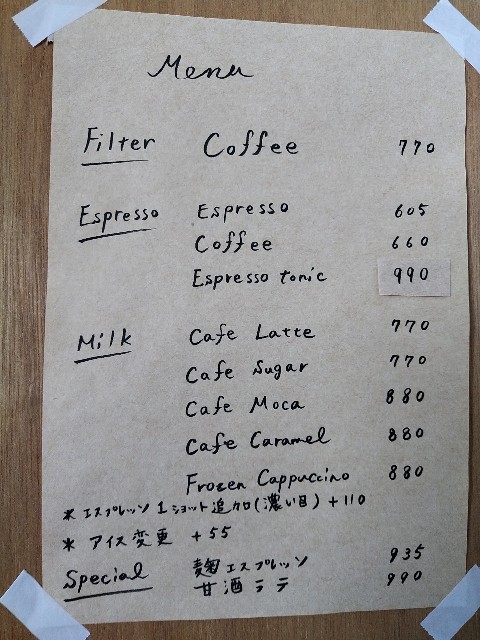 Menu
Filter Coffee 770
Espresso Espresso 605
Coffee 660
Espresso tonic 990
Milk Cafe Latte 770
Cafe Sugar 770
Cafe Moca 880
Cafe Caramel 880
Frozen Cappuccino 880
* エスプレッソ 1ショット追加(濃い目) +110
* アイス変更 +55
Special 麹エスプレッソ 935
甘酒ラテ 990